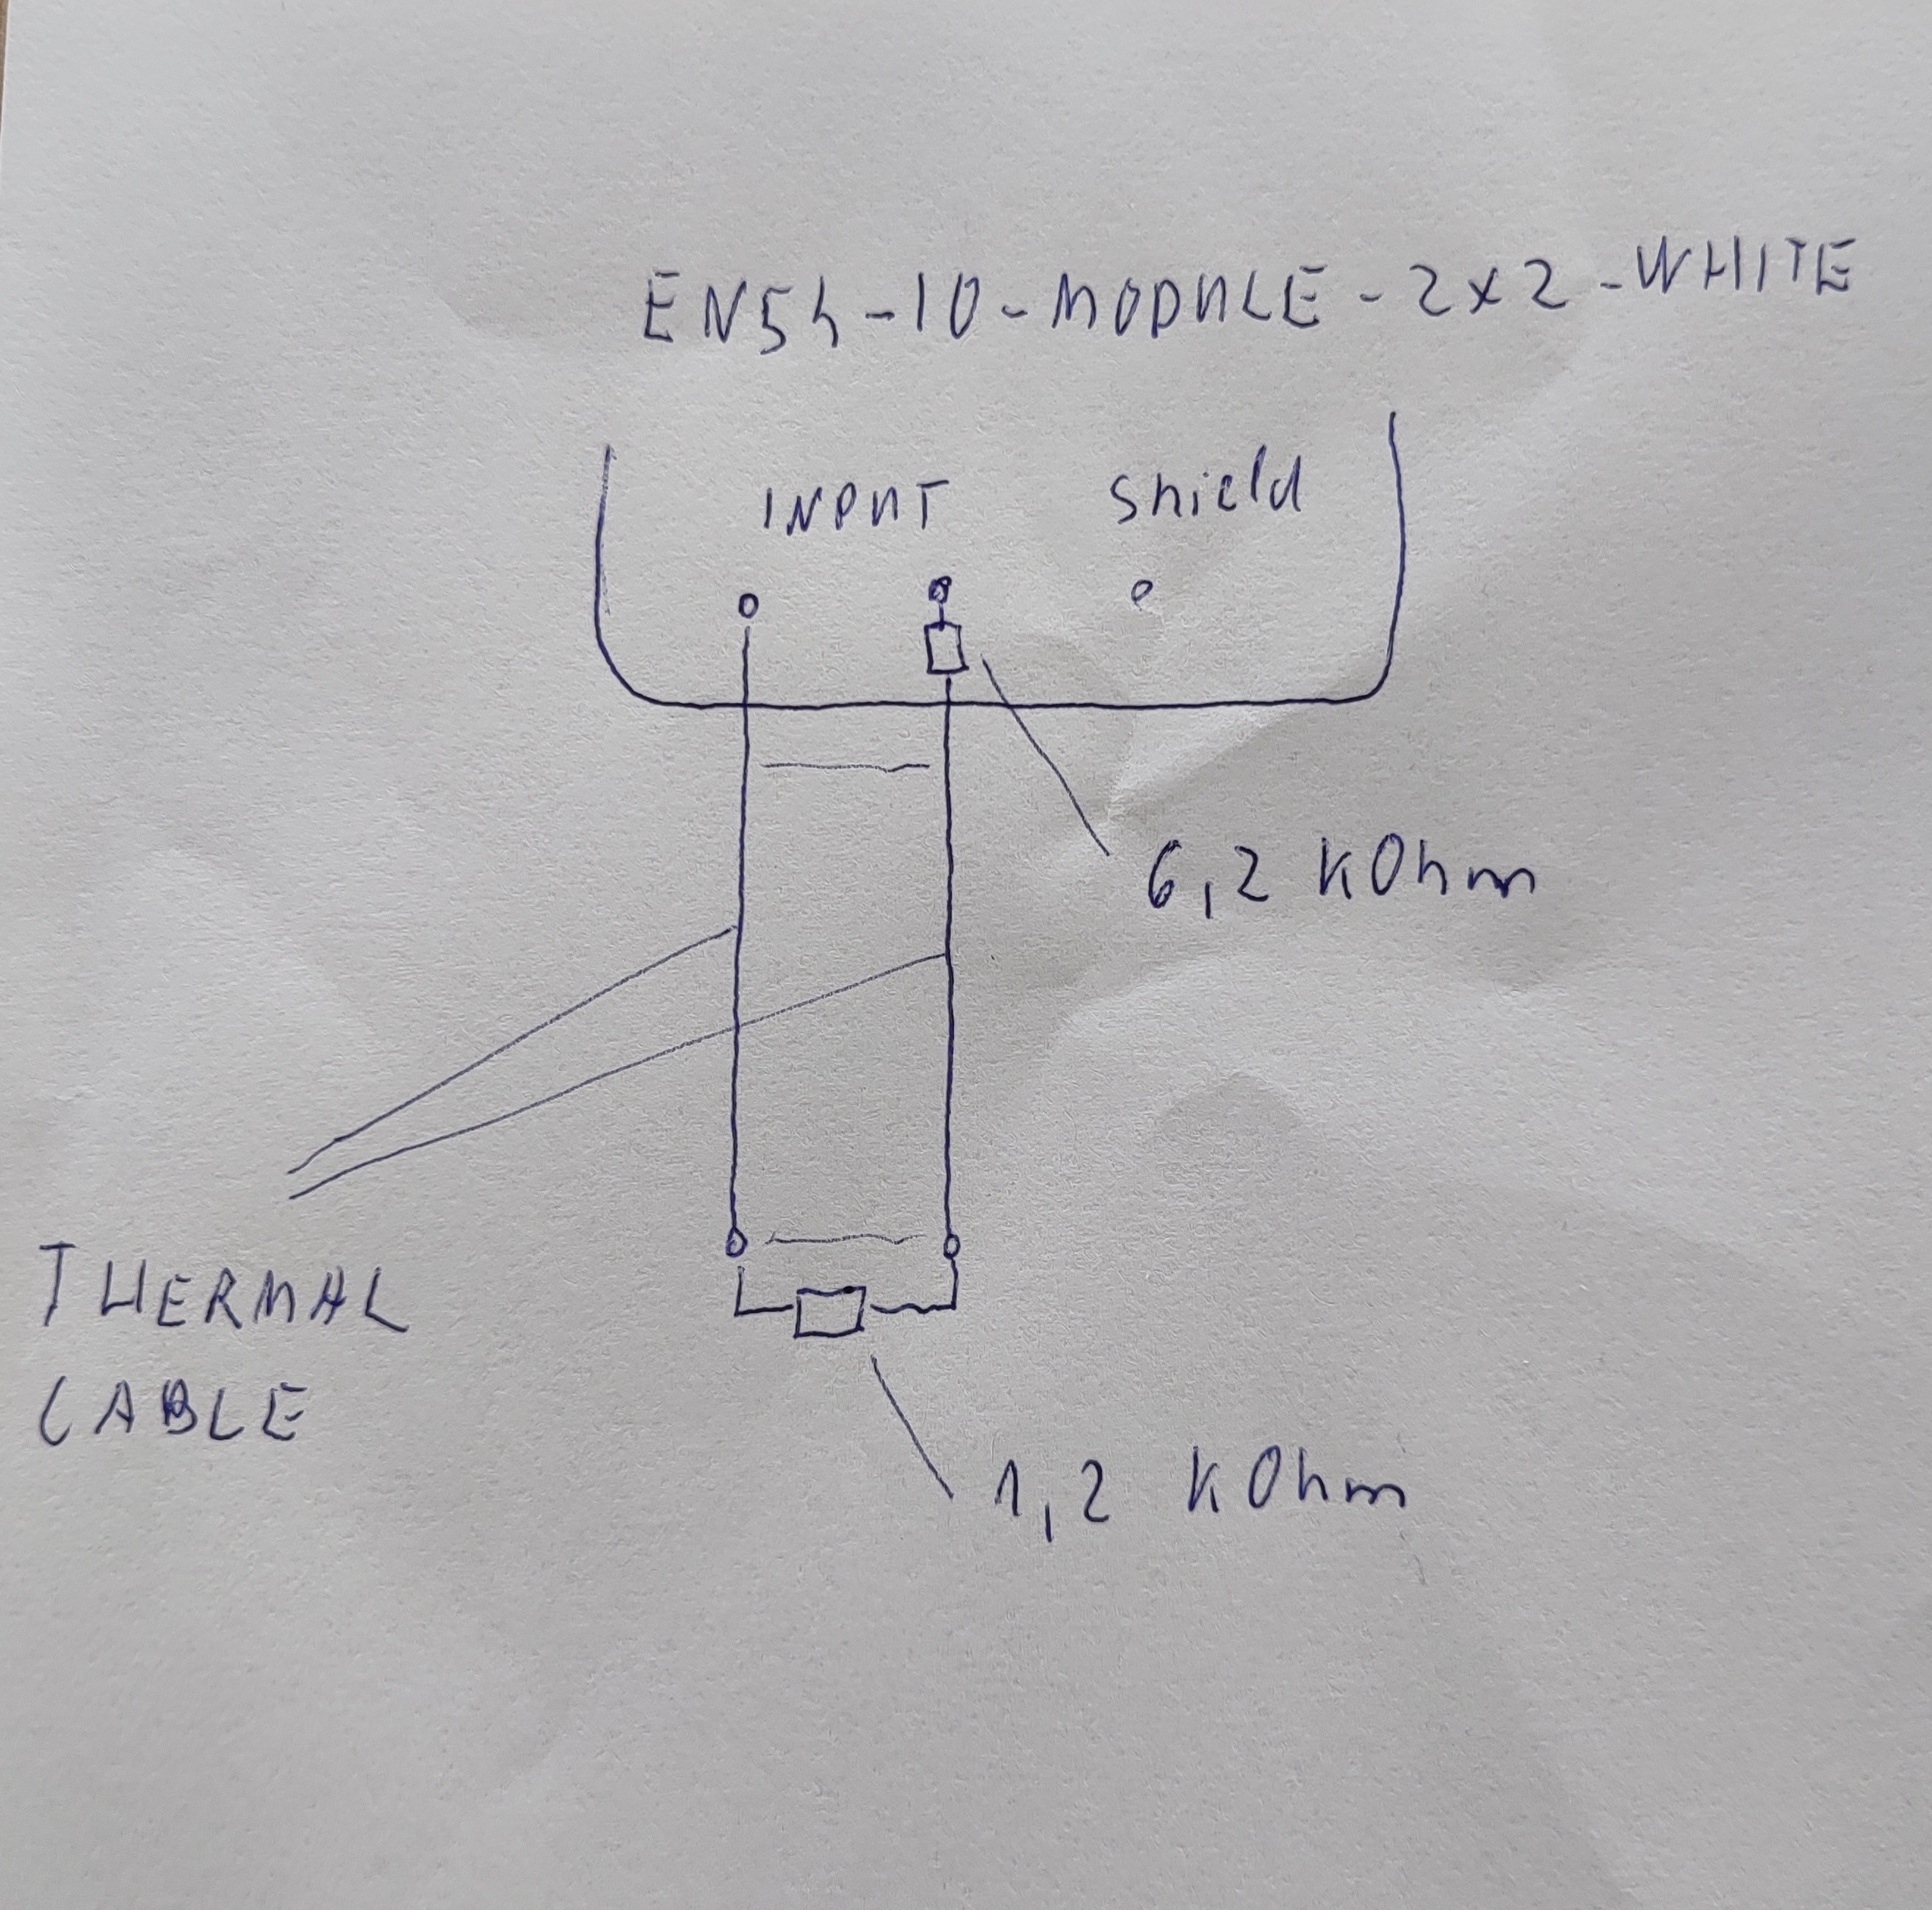 EN54-IO-MODULE-2x2-WHITE
INPUT shield
6,2 kOhm
THERMAL
CABLE
1,2 kOhm